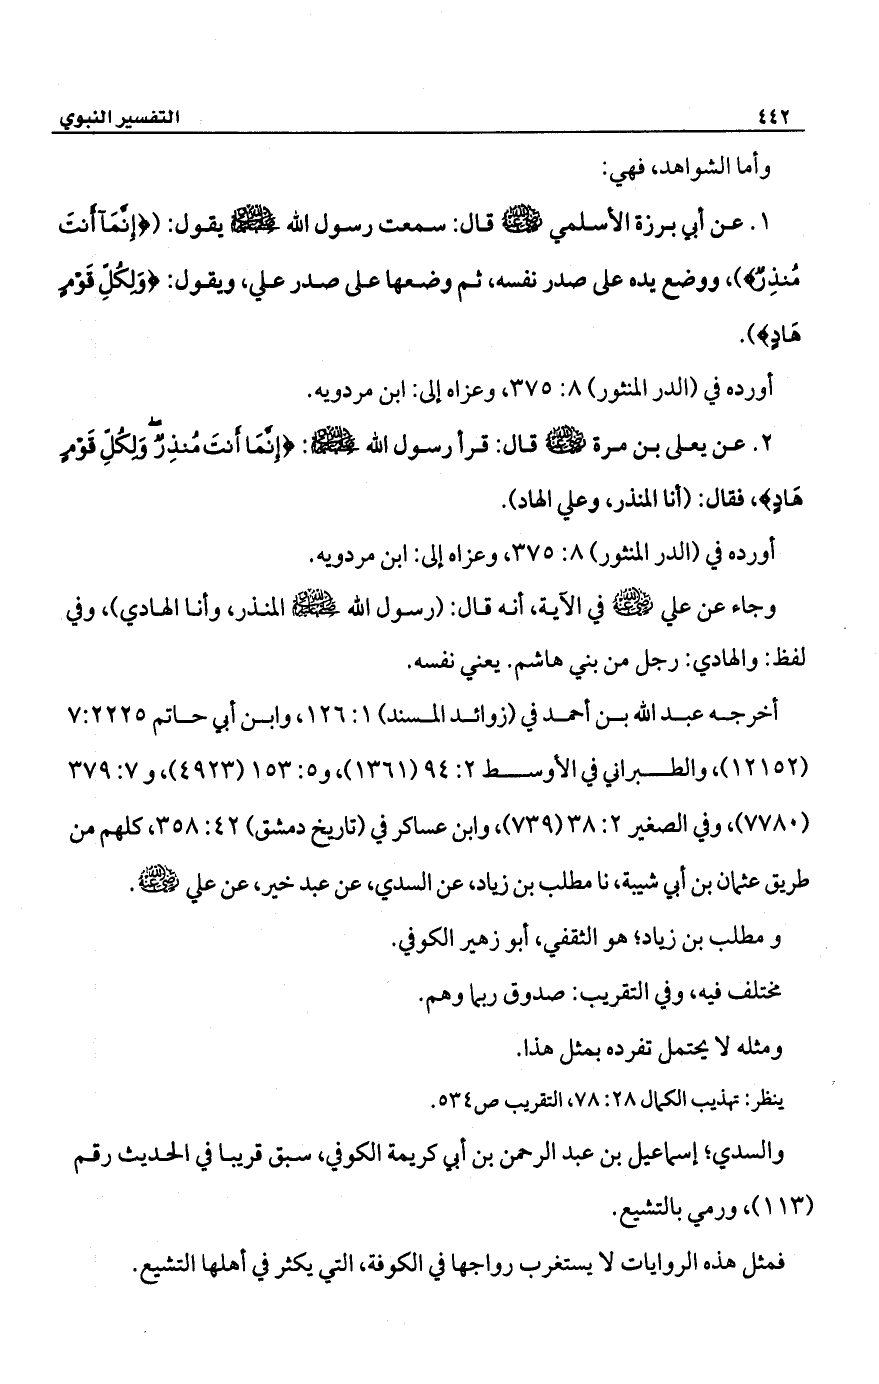 ٤٤٢ التفسير النبوي
وأما الشواهد، فهي:
١. عن أبي برزة الأسلمي رضي الله عنه قال: سمعت رسول الله ﷺ يقول: (﴿إِنَّمَآ أَنتَ
مُنذِرٌ﴾)، ووضع يده على صدر نفسه، ثم وضعها على صدر علي، ويقول: ﴿وَلِكُلِّ قَوْمٍ
هَادٍ﴾).
أورده في (الدر المنثور) ٨: ٣٧٥، وعزاه إلى: ابن مردويه.
٢. عن يعلى بن مرة رضي الله عنه قال: قرأ رسول الله ﷺ: ﴿إِنَّمَا أَنتَ مُنذِرٌ ۖ وَلِكُلِّ قَوْمٍ
هَادٍ﴾، فقال: (أنا المنذر، وعلي الهاد).
أورده في (الدر المنثور) ٨: ٣٧٥، وعزاه إلى: ابن مردويه.
وجاء عن علي رضي الله عنه في الآية، أنه قال: (رسول الله ﷺ المنذر، وأنا الهادي)، وفي
لفظ: والهادي: رجل من بني هاشم. يعني نفسه.
أخرجه عبد الله بن أحمد في (زوائد المسند) ١: ١٢٦، وابن أبي حاتم ٧:٢٢٢٥
(١٢١٥٢)، والطبراني في الأوسط ٢: ٩٤ (١٣٦١)، و٥: ١٥٣ (٤٩٢٣)، و ٧: ٣٧٩
(٧٧٨٠)، وفي الصغير ٢: ٣٨ (٧٣٩)، وابن عساكر في (تاريخ دمشق) ٤٢: ٣٥٨، كلهم من
طريق عثمان بن أبي شيبة، نا مطلب بن زياد، عن السدي، عن عبد خير، عن علي رضي الله عنه.
و مطلب بن زياد؛ هو الثقفي، أبو زهير الكوفي.
مختلف فيه، وفي التقريب: صدوق ربما وهم.
ومثله لا يحتمل تفرده بمثل هذا.
ينظر: تهذيب الكمال ٢٨: ٧٨، التقريب ص٥٣٤.
والسدي؛ إسماعيل بن عبد الرحمن بن أبي كريمة الكوفي، سبق قريبا في الحديث رقم
(١١٣)، ورمي بالتشيع.
فمثل هذه الروايات لا يستغرب رواجها في الكوفة، التي يكثر في أهلها التشيع.